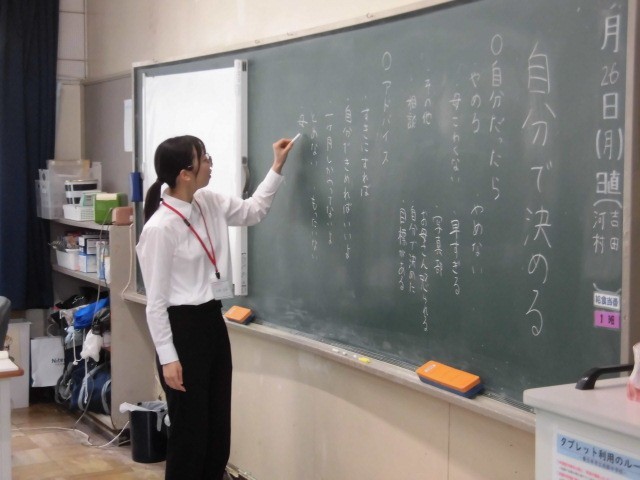 月26日(月)
日直
吉田
河村
給食当番
1班
自分で決める
○自分だったら
やめる
やめない
・母こわくない
・早すぎる
・写真部
・お母さんに怒られる
・その他
相談
自分で決めた
目標がある
○アドバイス
・すきにすれば
・自分できめればいいよ
・一ヶ月しかたってないよ
もったいない
タブレット利用のルー